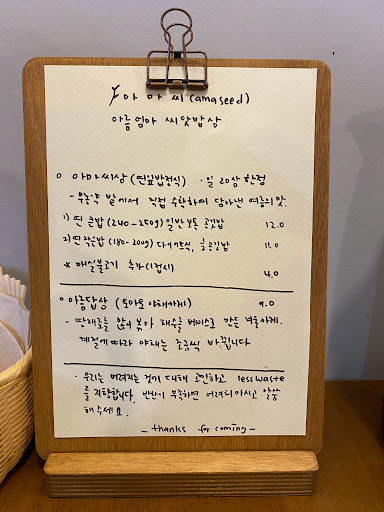 아마씨 (amaseed)
아름엄마 씨앗밥상
○ 아마씨상 (연잎밥정식) · 일 20상 한정
- 무농약 밭에서 직접 수확하여 담아낸 여름의 맛.
1) 연 큰밥 (240-250g) 일반 보통 공깃밥 12.0
2) 연 작은밥 (180-200g) 다이어트식, 공깃밥 11.0
* 매실불고기 추가 (1접시) 4.0
○ 아름답상 (토마토 야채카레) 9.0
- 땅재료를 볶아 채수를 베이스로 만든 카레.
계절에따라 야채는 조금씩 바뀝니다
· 우리는 버려지는 것에 대해 고민하고 less waste
를 지향합니다. 반찬이 부족하면 어려워마시고 말씀
해주세요.
- thanks for coming -